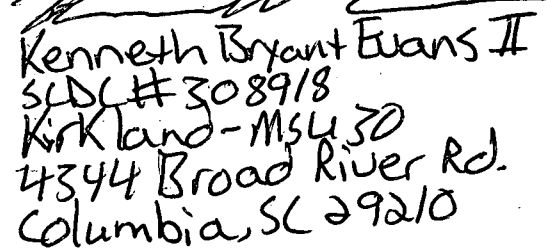 Kenneth Bryant Evans II
SCDC#308918
Kirkland-MSU30
4344 Broad River Rd.
Columbia, SC 29210